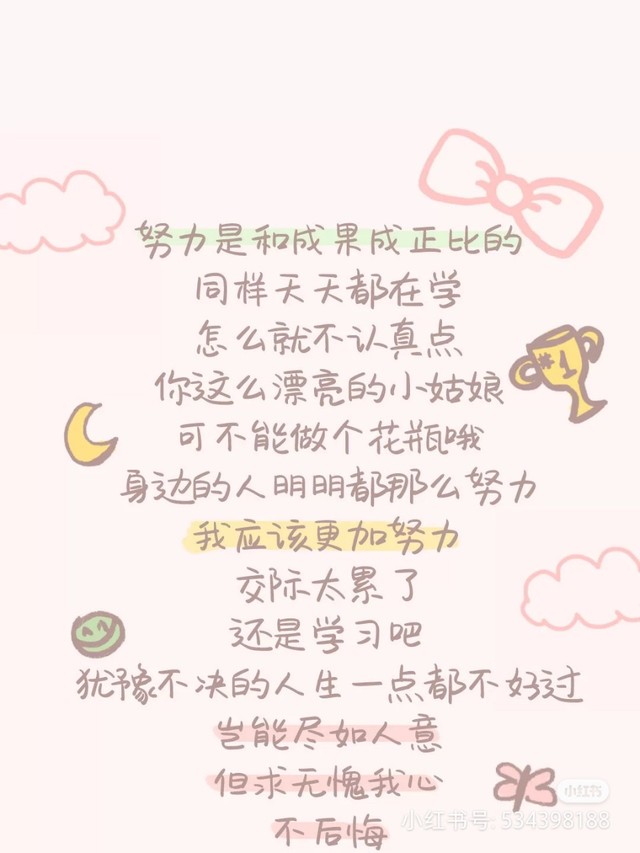 努力是和成果成正比的
同样天天都在学
怎么就不认真点
你这么漂亮的小姑娘
可不能做个花瓶哦
身边的人明明都那么努力
我应该更加努力
交际太累了
还是学习吧
犹豫不决的人生一点都不好过
岂能尽如人意
但求无愧我心
不后悔
小红书
小红书号: 534398188